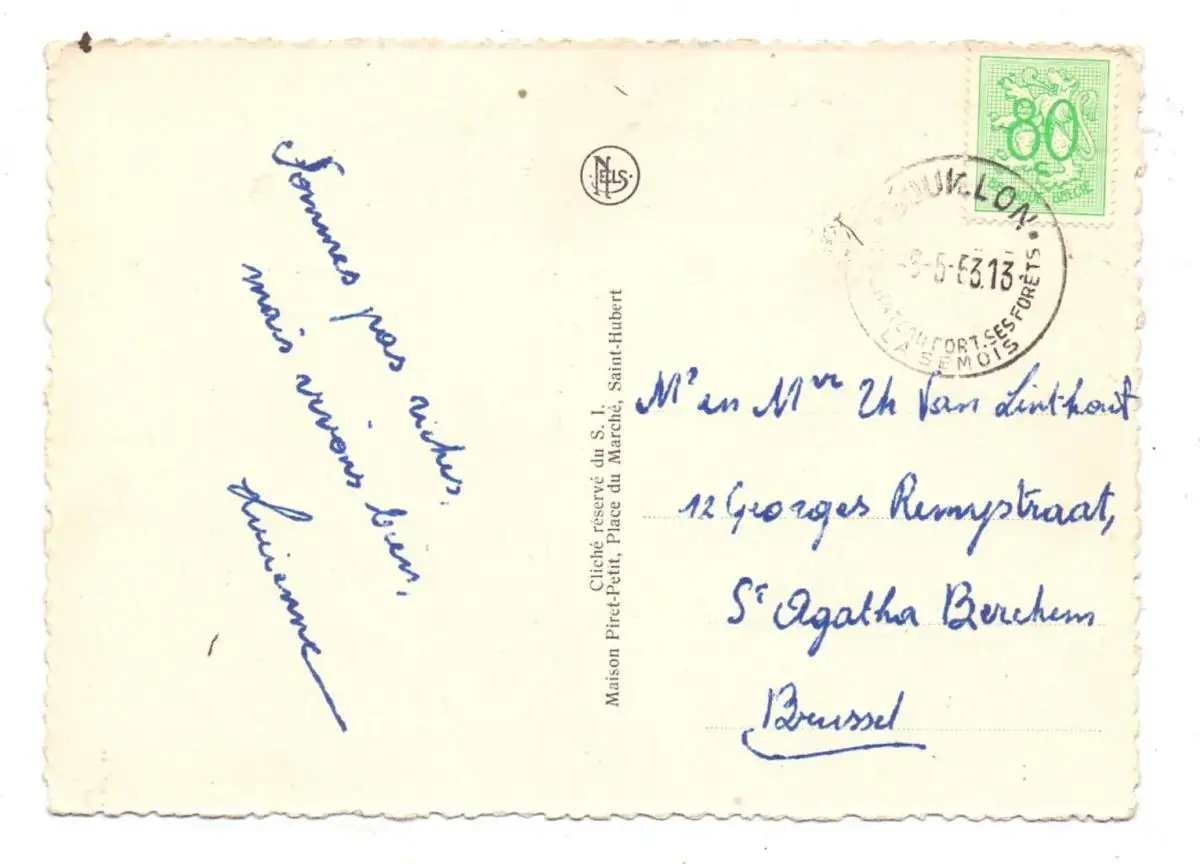 Sommes pas riches,
mais vivons bien.
Lucienne
NELS
Cliché réservé du S. I.
Maison Piret-Petit, Place du Marché, Saint-Hubert
80
c
BELGIQUE-BELGIË
BOUILLON
-5-63.13
FORT.SES FORÊTS
LA SEMOIS
Mr en Mvr Th Van Linthout
12 Georges Remystraat,
St Agatha Berchem
Brussel